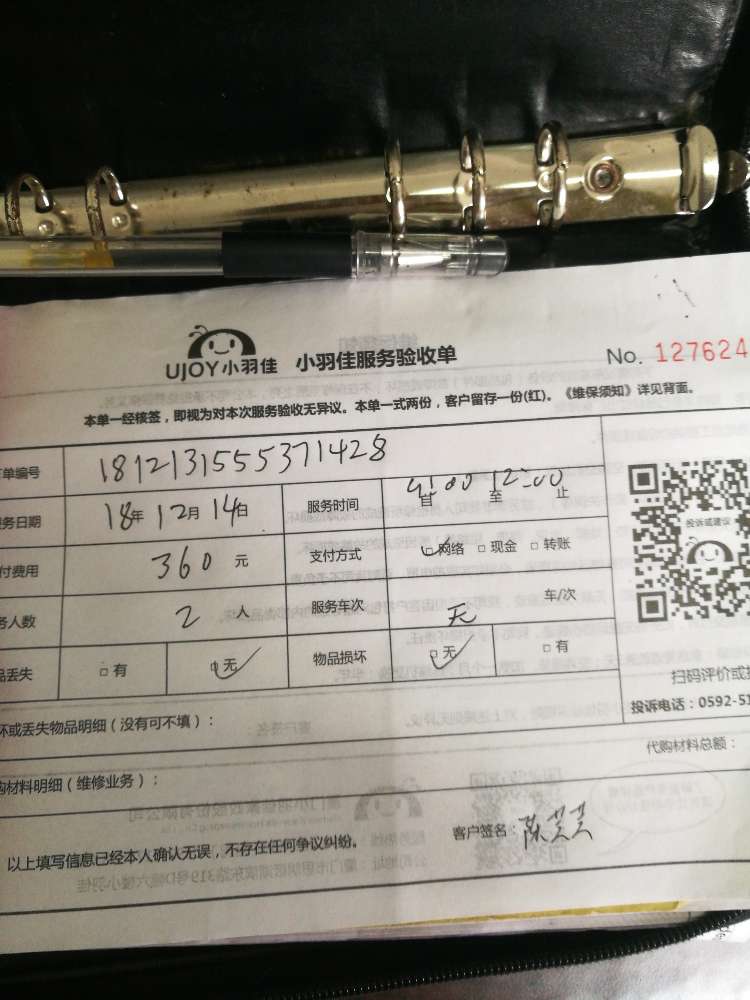 UJOY小羽佳 小羽佳服务验收单 No. 127624
本单一经核签，即视为对本次服务验收无异议。本单一式两份，客户留存一份(红)。《维保须知》详见背面。
单编号 1812131555371428
务日期 18年 12月 14日 服务时间 9:00 自 至 12:00 止
付费用 360 元 支付方式 网络 现金 转账
务人数 2 人 服务车次 无 车/次
品丢失 有 无 物品损坏 无 有
投诉或建议
扫码评价或投
投诉电话：0592-51
坏或丢失物品明细（没有可不填）：
购材料明细（维修业务）： 代购材料总额：
以上填写信息已经本人确认无误，不存在任何争议纠纷。 客户签名：陈